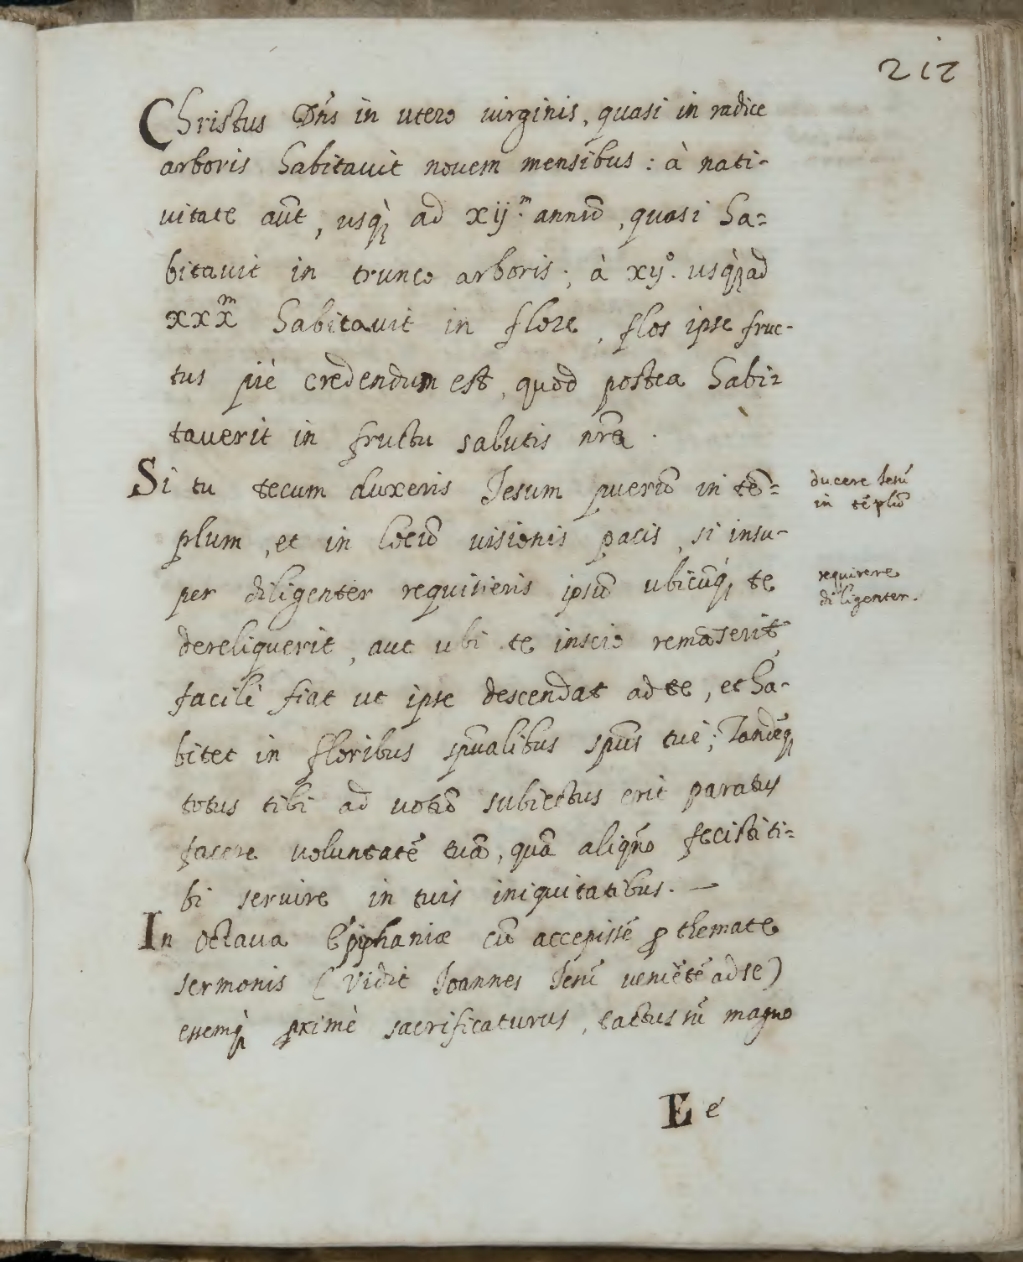 212
Christus Dñs in utero virginis, quasi in radice
arboris habitauit nouem mensibus : à nati-
uitate aũt, usq; ad xij.m annũ, quasi ha=
bitauit in trunco arboris; à xij.o usq; ad
xxxm habitauit in flore, flos ipse fruc-
tus piè credendum est, quod postea habi=
tauerit in fructu salutis nr̃æ.
Si tu tecum duxeris Iesum puerũ in tẽ=
plum, et in locũ uisionis pacis, si insu-
per diligenter requisieris ipsũ ubicũq; te
dereliquerit, aut ubi te inscio remãserit,
facili fiat ut ipse descendat ad te, et ha-
bitet in floribus spũalibus spũs tui; Tandẽq;
totus tibi ad uotũ subiectus erit paratus
facere voluntatẽ tuã, quã aliqñ fecisti ti=
bi seruire in tuis iniquitatibus. —
In octaua Epiphaniæ cũ accepissẽ ꝓ themate
sermonis (Vidit Ioannes Iesũ veniẽtẽ ad se)
essemq; proximè sacrificaturus, tactus sũ magno
ducere Iesũ
in tẽplũ
requirere
diligenter.
Ee